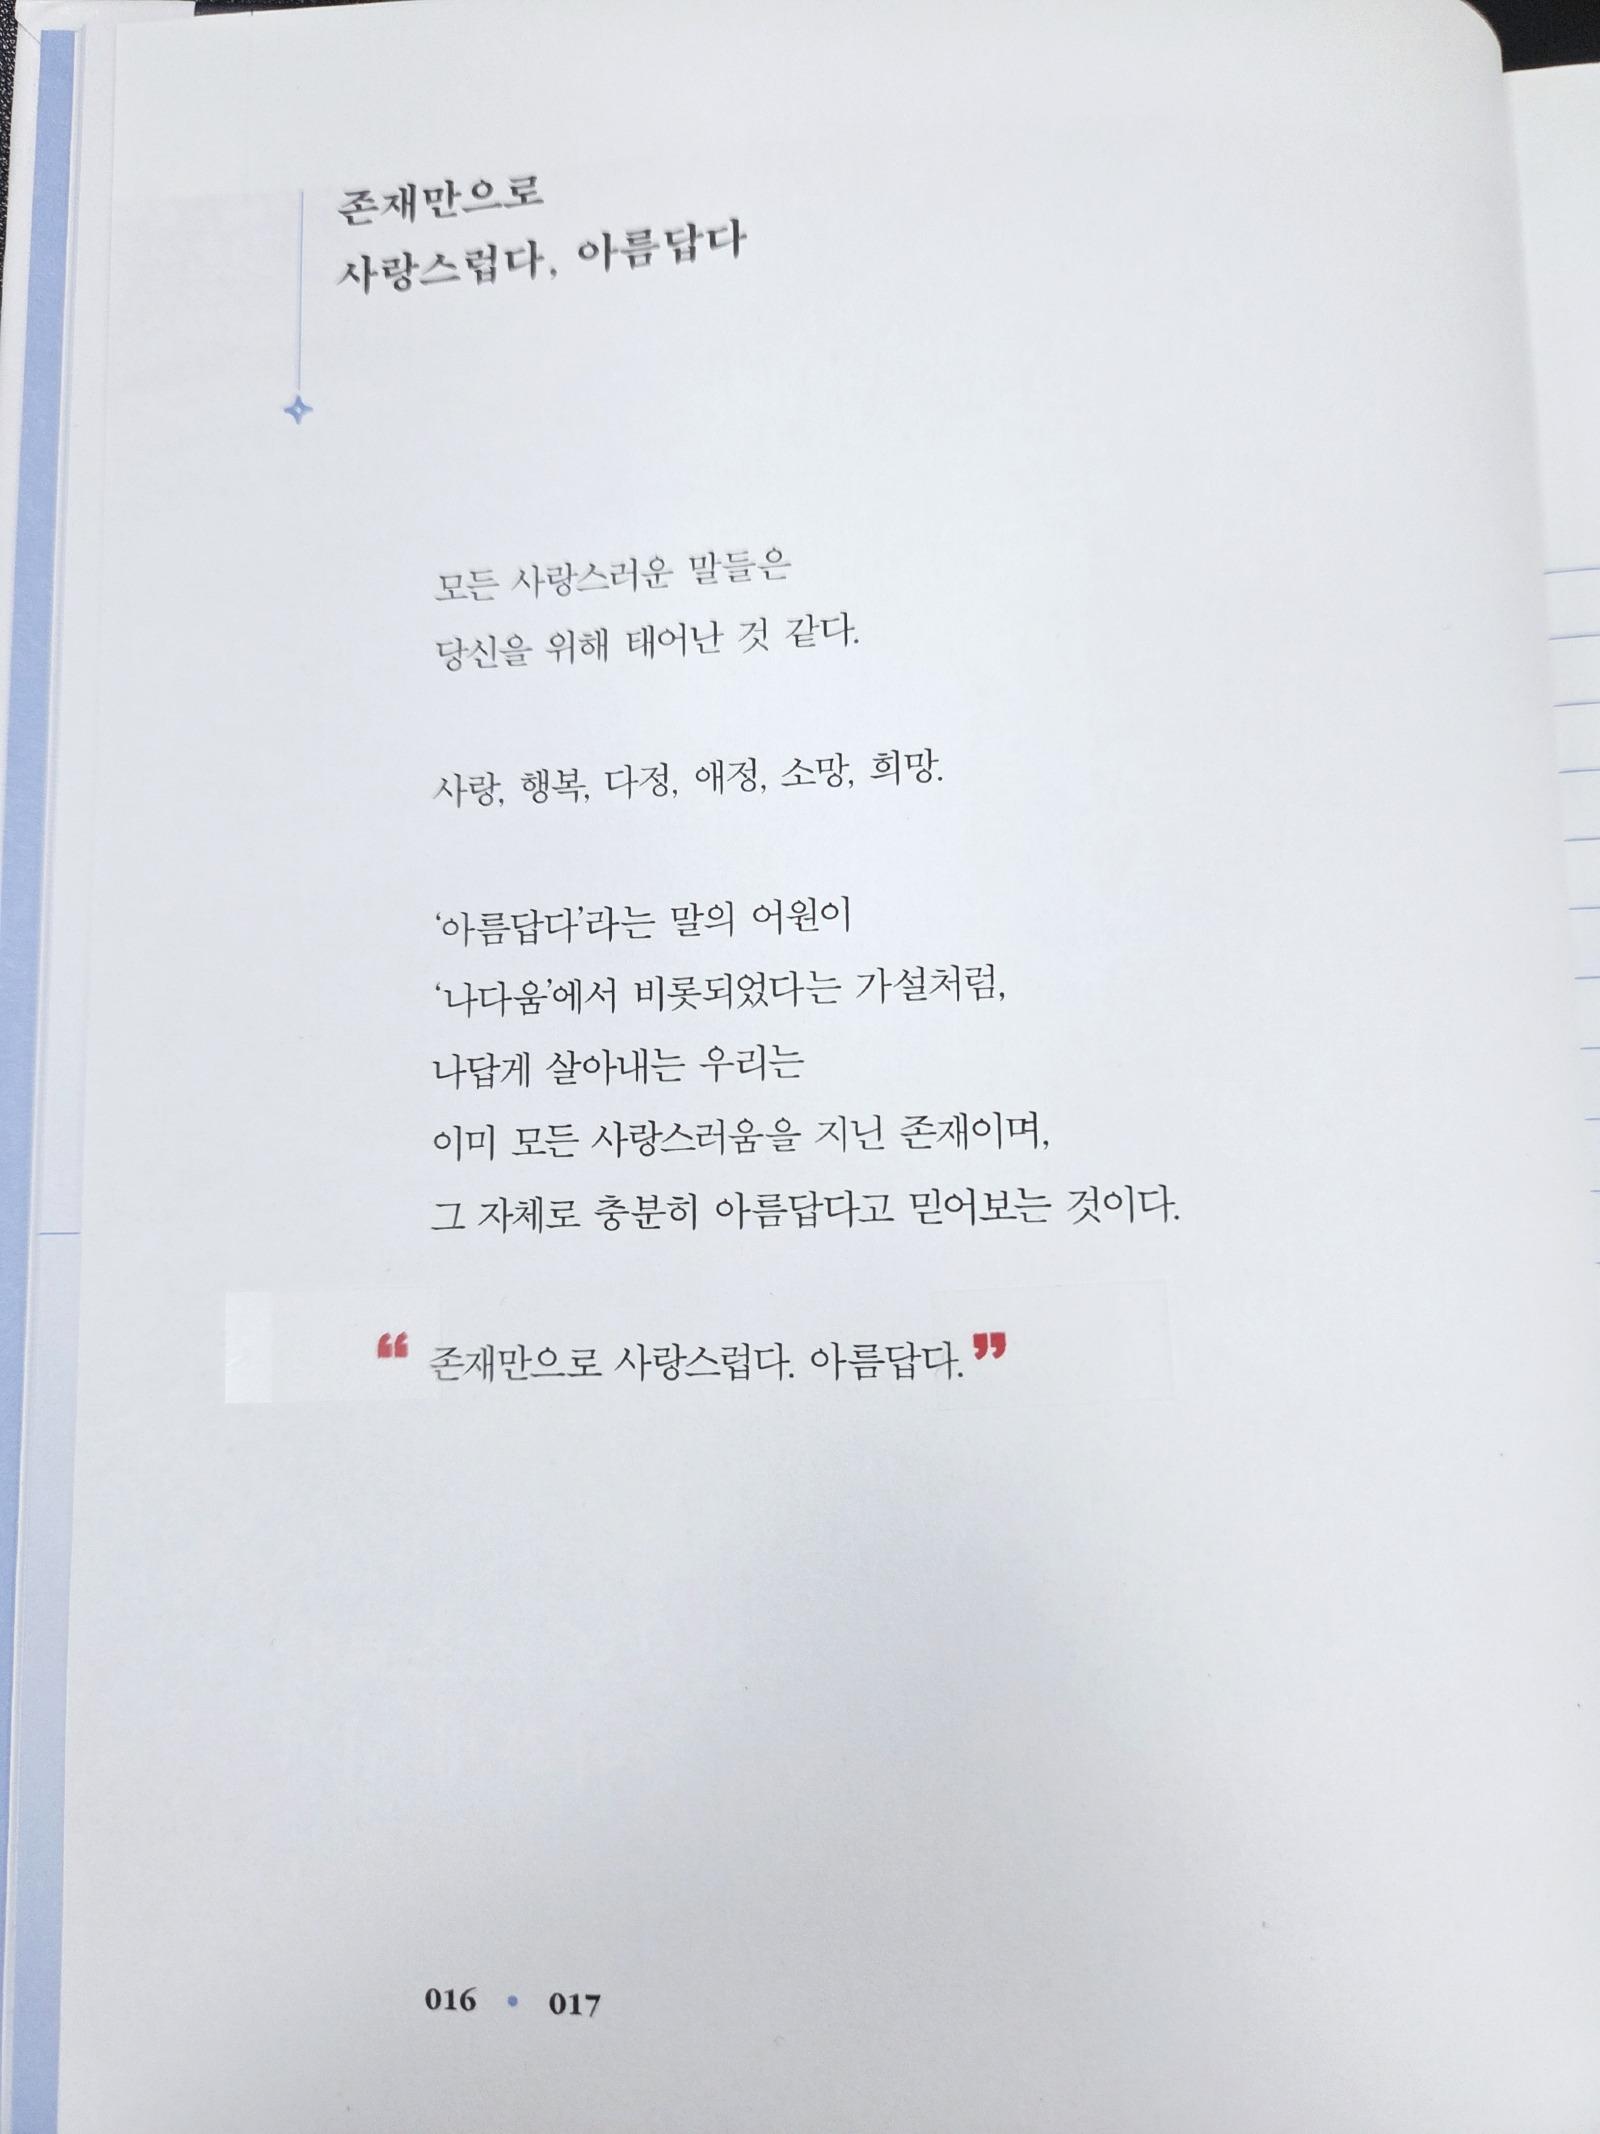 존재만으로
사랑스럽다, 아름답다
모든 사랑스러운 말들은
당신을 위해 태어난 것 같다.
사랑, 행복, 다정, 애정, 소망, 희망.
‘아름답다’라는 말의 어원이
‘나다움’에서 비롯되었다는 가설처럼,
나답게 살아내는 우리는
이미 모든 사랑스러움을 지닌 존재이며,
그 자체로 충분히 아름답다고 믿어보는 것이다.
❝ 존재만으로 사랑스럽다. 아름답다. ❞
016 • 017